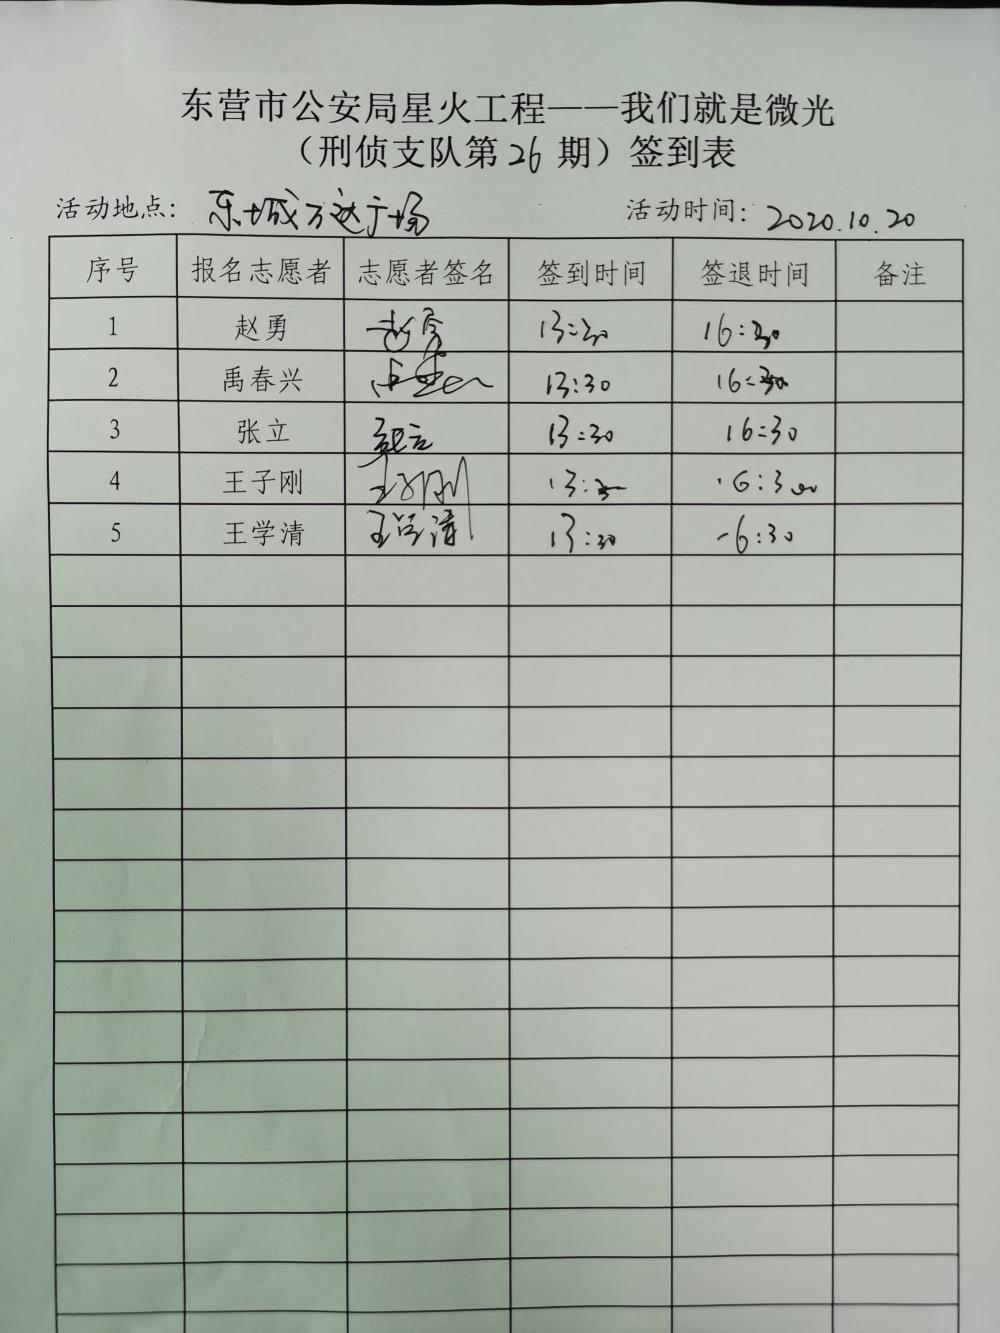 东营市公安局星火工程——我们就是微光
（刑侦支队第26期）签到表
活动地点：东城万达广场 活动时间：2020.10.20
序号 报名志愿者 志愿者签名 签到时间 签退时间 备注
1 赵勇 赵勇 13:30 16:30
2 禹春兴 13:30 16:30
3 张立 张立 13:30 16:30
4 王子刚 王子刚 13:30 16:30
5 王学清 王学清 13:30 16:30